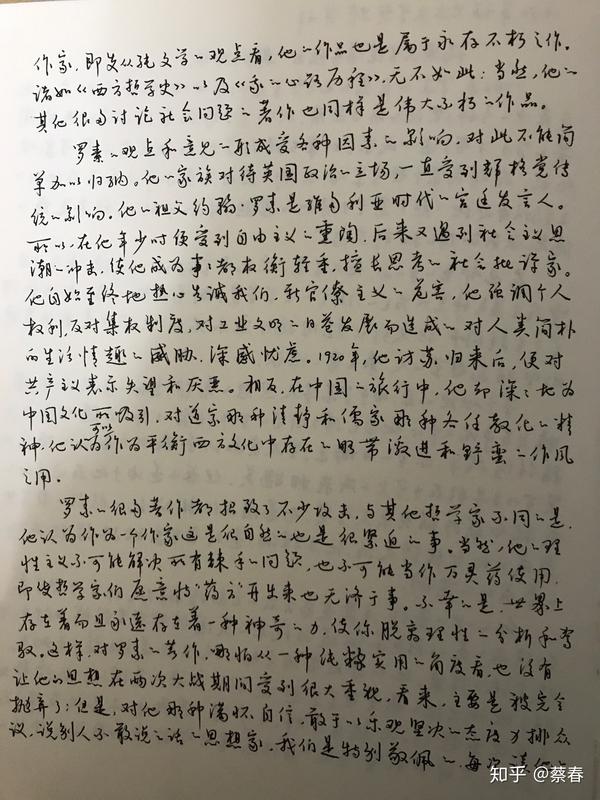 作家，即使从纯文学的观点看，他的作品也是属于永存不朽之作。
诸如《西方哲学史》以及《我的心路历程》，无不如此；当然，他的
其他很多讨论社会问题的著作也同样是伟大不朽的作品。
罗素的观点和意见的形成受各种因素的影响，对此不能简
单加以归纳。他的家族对待英国政治的立场，一直受到辉格党传
统的影响。他的祖父约翰·罗素是维多利亚时代的宫廷发言人。
所以在他年少时便受到自由主义的熏陶，后来又遇到社会主义思
潮的冲击，使他成为事事都权衡轻重，擅长思考的社会批评家。
他自始至终地热心告诫我们，新官僚主义的危害，他强调个人
权利，反对集权制度，对工业文明的日益发展而造成的对人类简朴
的生活情趣的威胁，深感忧虑。1920年，他访苏归来后，便对
共产主义表示失望和厌恶。相反，在中国的旅行中，他却深深地为
中国文化所吸引，对道家那种清静和儒家那种各任教化的精
神，他认为可以作为平衡西方文化中存在的那带激进和野蛮的作风
之用。
罗素的很多著作都招致了不少攻击，与其他哲学家不同的是，
他认为作为一个作家这是很自然的也是很紧迫的事。当然，他的理
性主义不可能解决所有棘手的问题，也不可能当作万灵药使用，
即使哲学家们愿意将“药方”开出来也无济于事。不幸的是，世界上
存在着而且永远存在着一种神奇的力，使你脱离理性的分析和驾
驭。这样，对罗素的著作，哪怕从一种纯粹实用的角度看，也没有
让他的思想在两次大战期间受到很大重视，看来，主要是被完全
抛弃了；但是，对他那种满怀自信，敢于以乐观坚决的态度力排众
议，说别人不敢说之话的思想家，我们是特别敬佩的，每次读他的
知乎 @蔡春